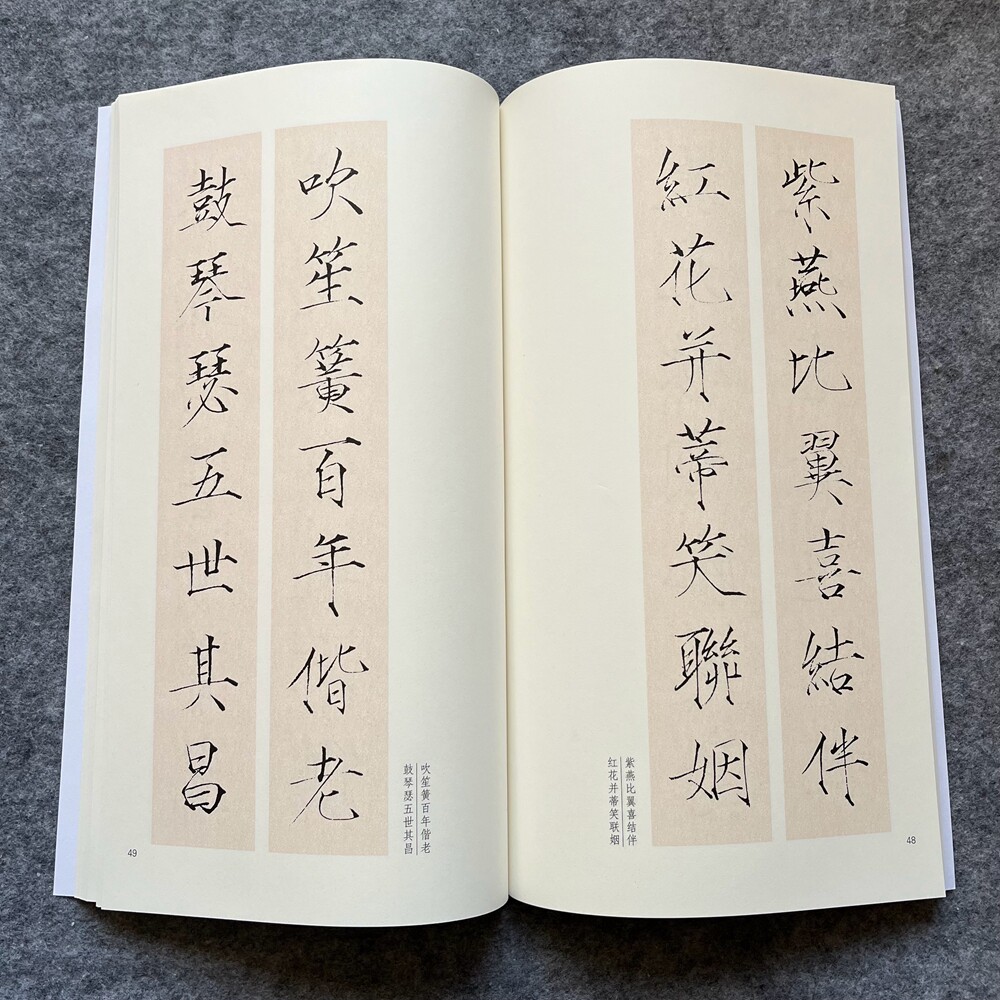 紫燕比翼喜結伴
紅花并蒂笑聯姻
紫燕比翼喜结伴
红花并蒂笑联姻
48
吹笙簧百年偕老
鼓琴瑟五世其昌
吹笙簧百年偕老
鼓琴瑟五世其昌
49